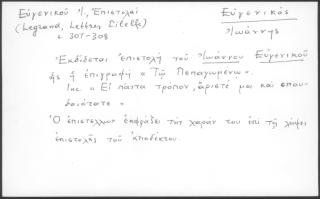 Εὐγενικοῦ Ἰ., Ἐπιστολαί
Εὐγενικός
(Legrand, Lettres
Ἰωάννης
σ. 307-308
Ἐκδίδεται ἐπιστολή τοῦ Ἰωάννου Εὐγενικοῦ
ἧς ἡ ἐπιγραφή « Τῷ Πεπαγωμένῳ ».
Inc. « Εἰ πάντα τρόπον, ἄριστέ μοι καί σπου-
δαιότατε »
Ὁ ἐπιστέλλων ἐκφράζει τήν χαράν του ἐπί τῇ λήψει
ἐπιστολῆς τοῦ ἀποδέκτου.